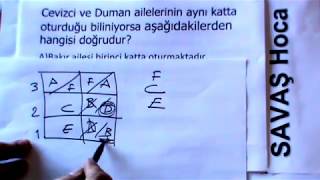 Cevizci ve Duman ailelerinin aynı katta
oturduğu biliniyorsa aşağıdakilerden
hangisi doğrudur?
A)Bakır ailesi birinci katta oturmaktadır
3 A/F F/A
2 C B/D
1 E D/B
F
C
E
SAVAŞ Hoca